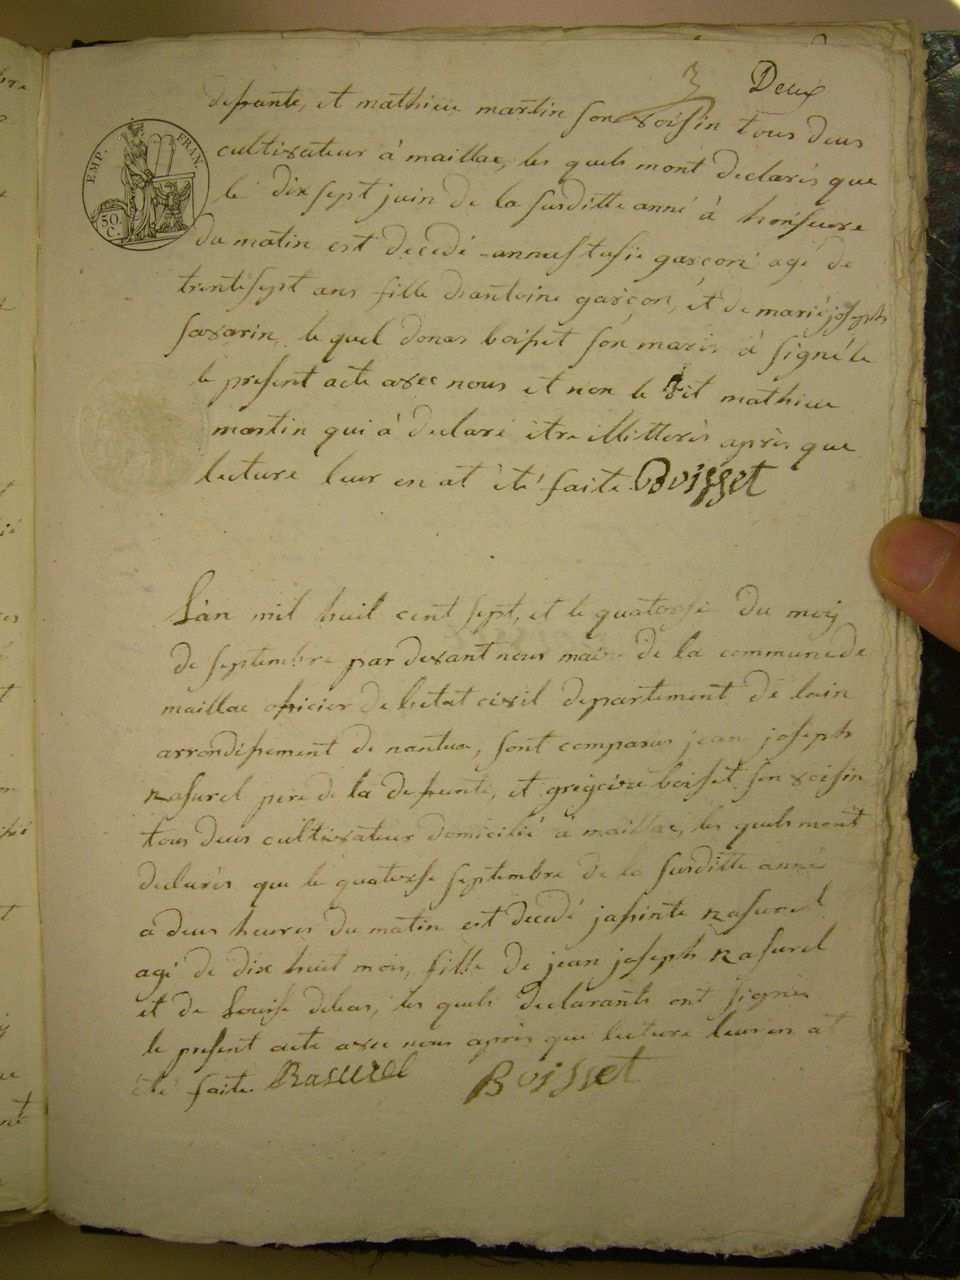 3 Deux
defunte, et mathieu martin son voisin tous deus
cultivateur à maillac, les quels mont declarés que
le dix sept juin de la susditte anné à honseure
du matin est decedé annastasie garçon agé de
trente sept ans fille dantoine garçon, et de marie joseph
savarin, le quel donas boisset son maris à signé le
le present acte avec nous et non le dit mathieu
martin qui à declaré être illitteres après que
lecture leur en at été faite. Boisset
EMP. FRAN.
50. C.
L'an mil huit cent sept, et le quatorse du mois
de septembre par devant nous maire de la commune de
maillac officier de letat civil departement de lain
arrondissement de nantua, sont comparus jean joseph
rasurel pere de la defunte, et grigoire boisset son voisin
tous deus cultivateur domicilié à maillac, les quels mont
declarés que le quatorse septembre de la susditte anné
a deus heures du matin est decedé jasinte rasurel
agé de dix huit mois, fille de jean joseph rasurel
et de Louise deleas, les quels declarants ont signés
le present acte avec nous après que lecture leur en at
été faite. Rasurel Boisset